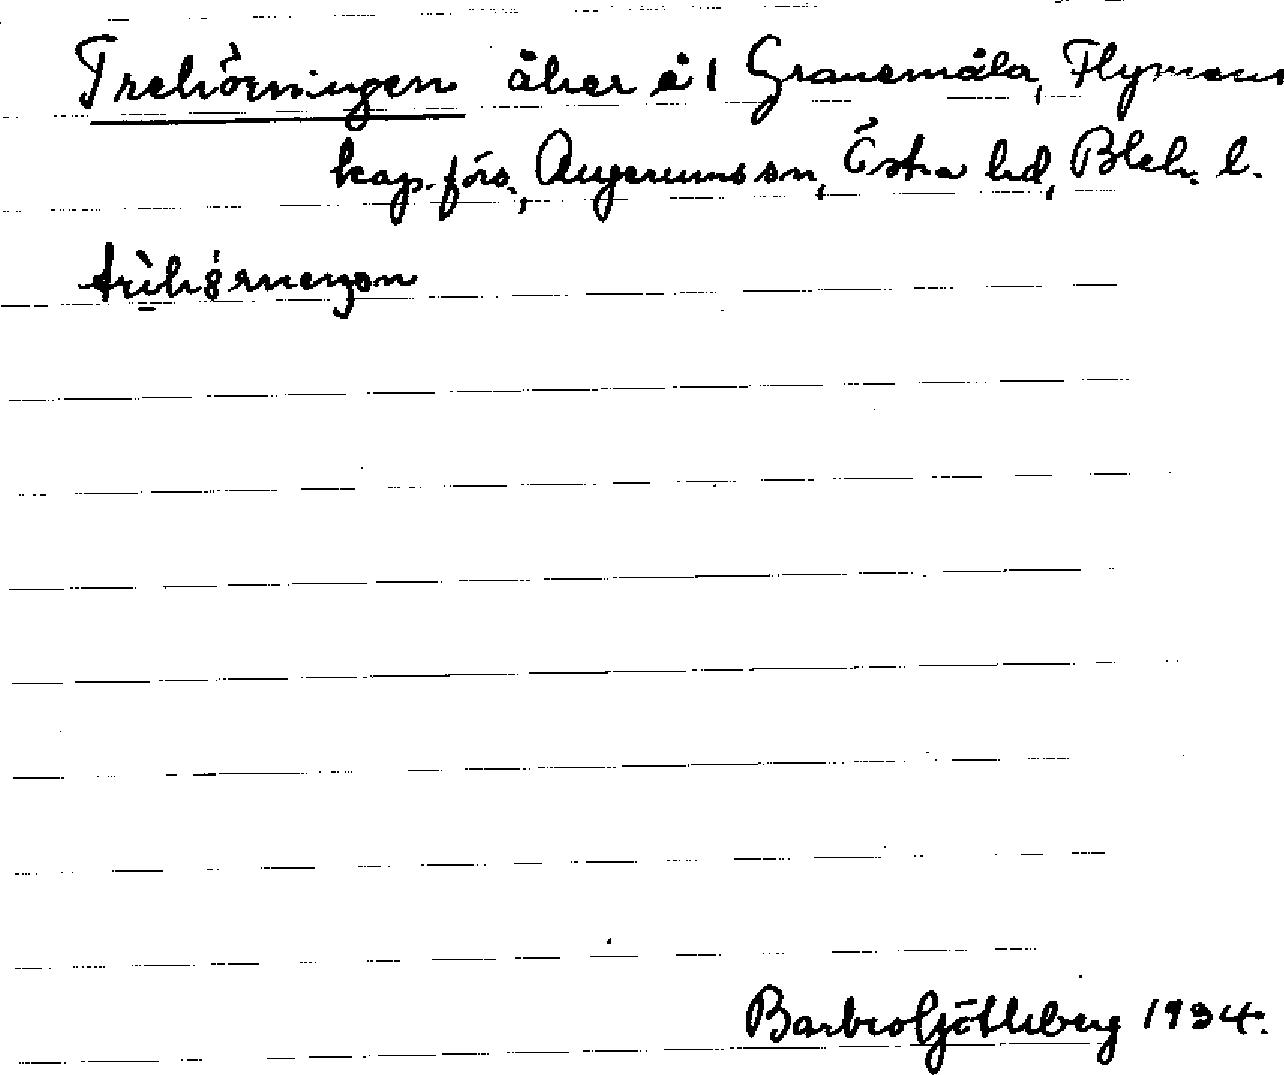 Trehörningen åker å 1 Granemåla, Flymens
kap. förs., Augerums sn, Östra hd, Blek. l.
Barbro Götlberg 1934.